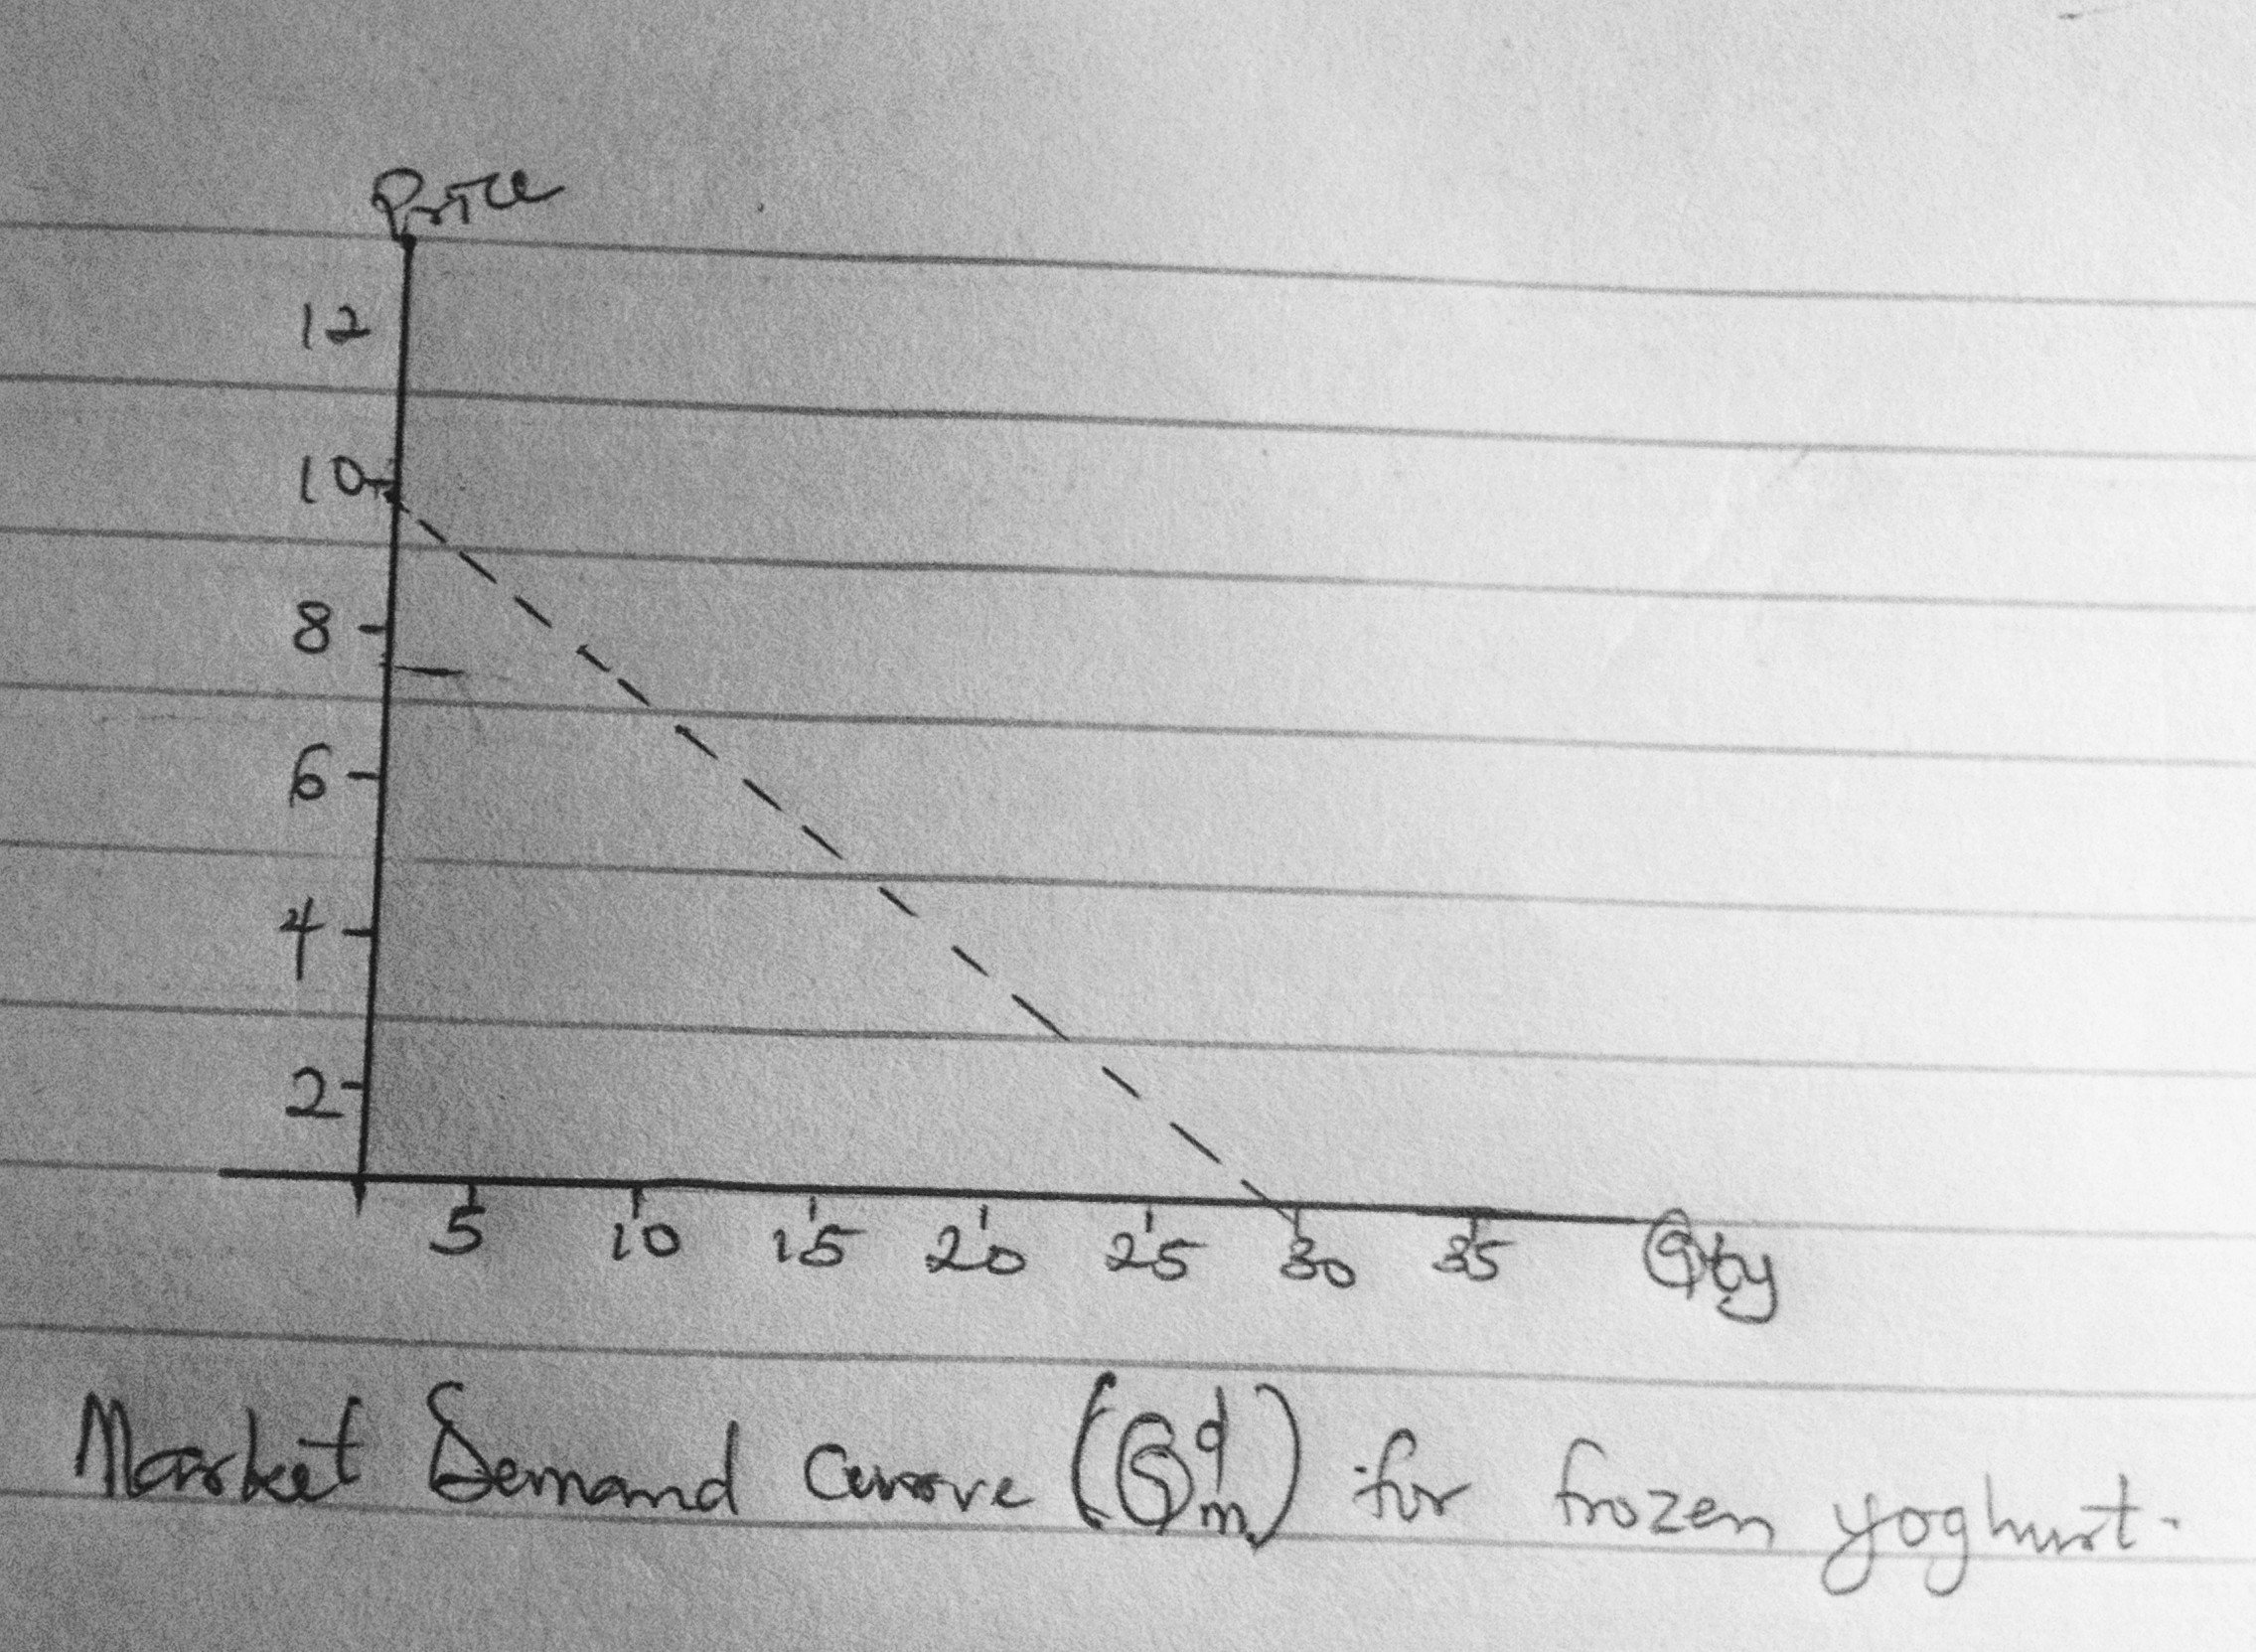 Price
12
10
8
6
4
2
5 10 15 20 25 30 35 Qty
Market Demand Curve (Q^d_m) for frozen yoghurt.